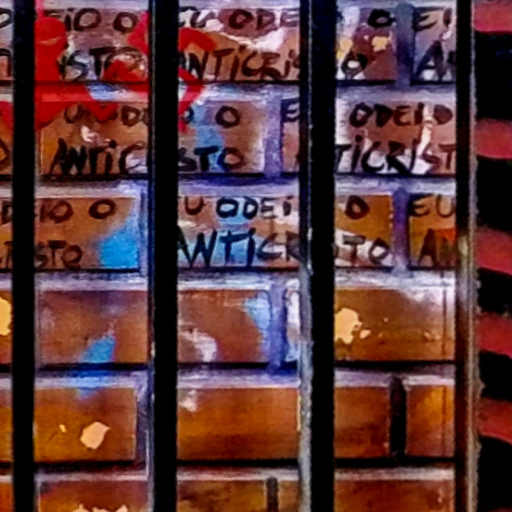 EIO O EU ODE O EU
ISTO ANTICRIS O AN
U OD O E ODEIO
O ANTIC STO TICRIST
DEIO O U ODEI O EU
ISTO ANTICR STO AN